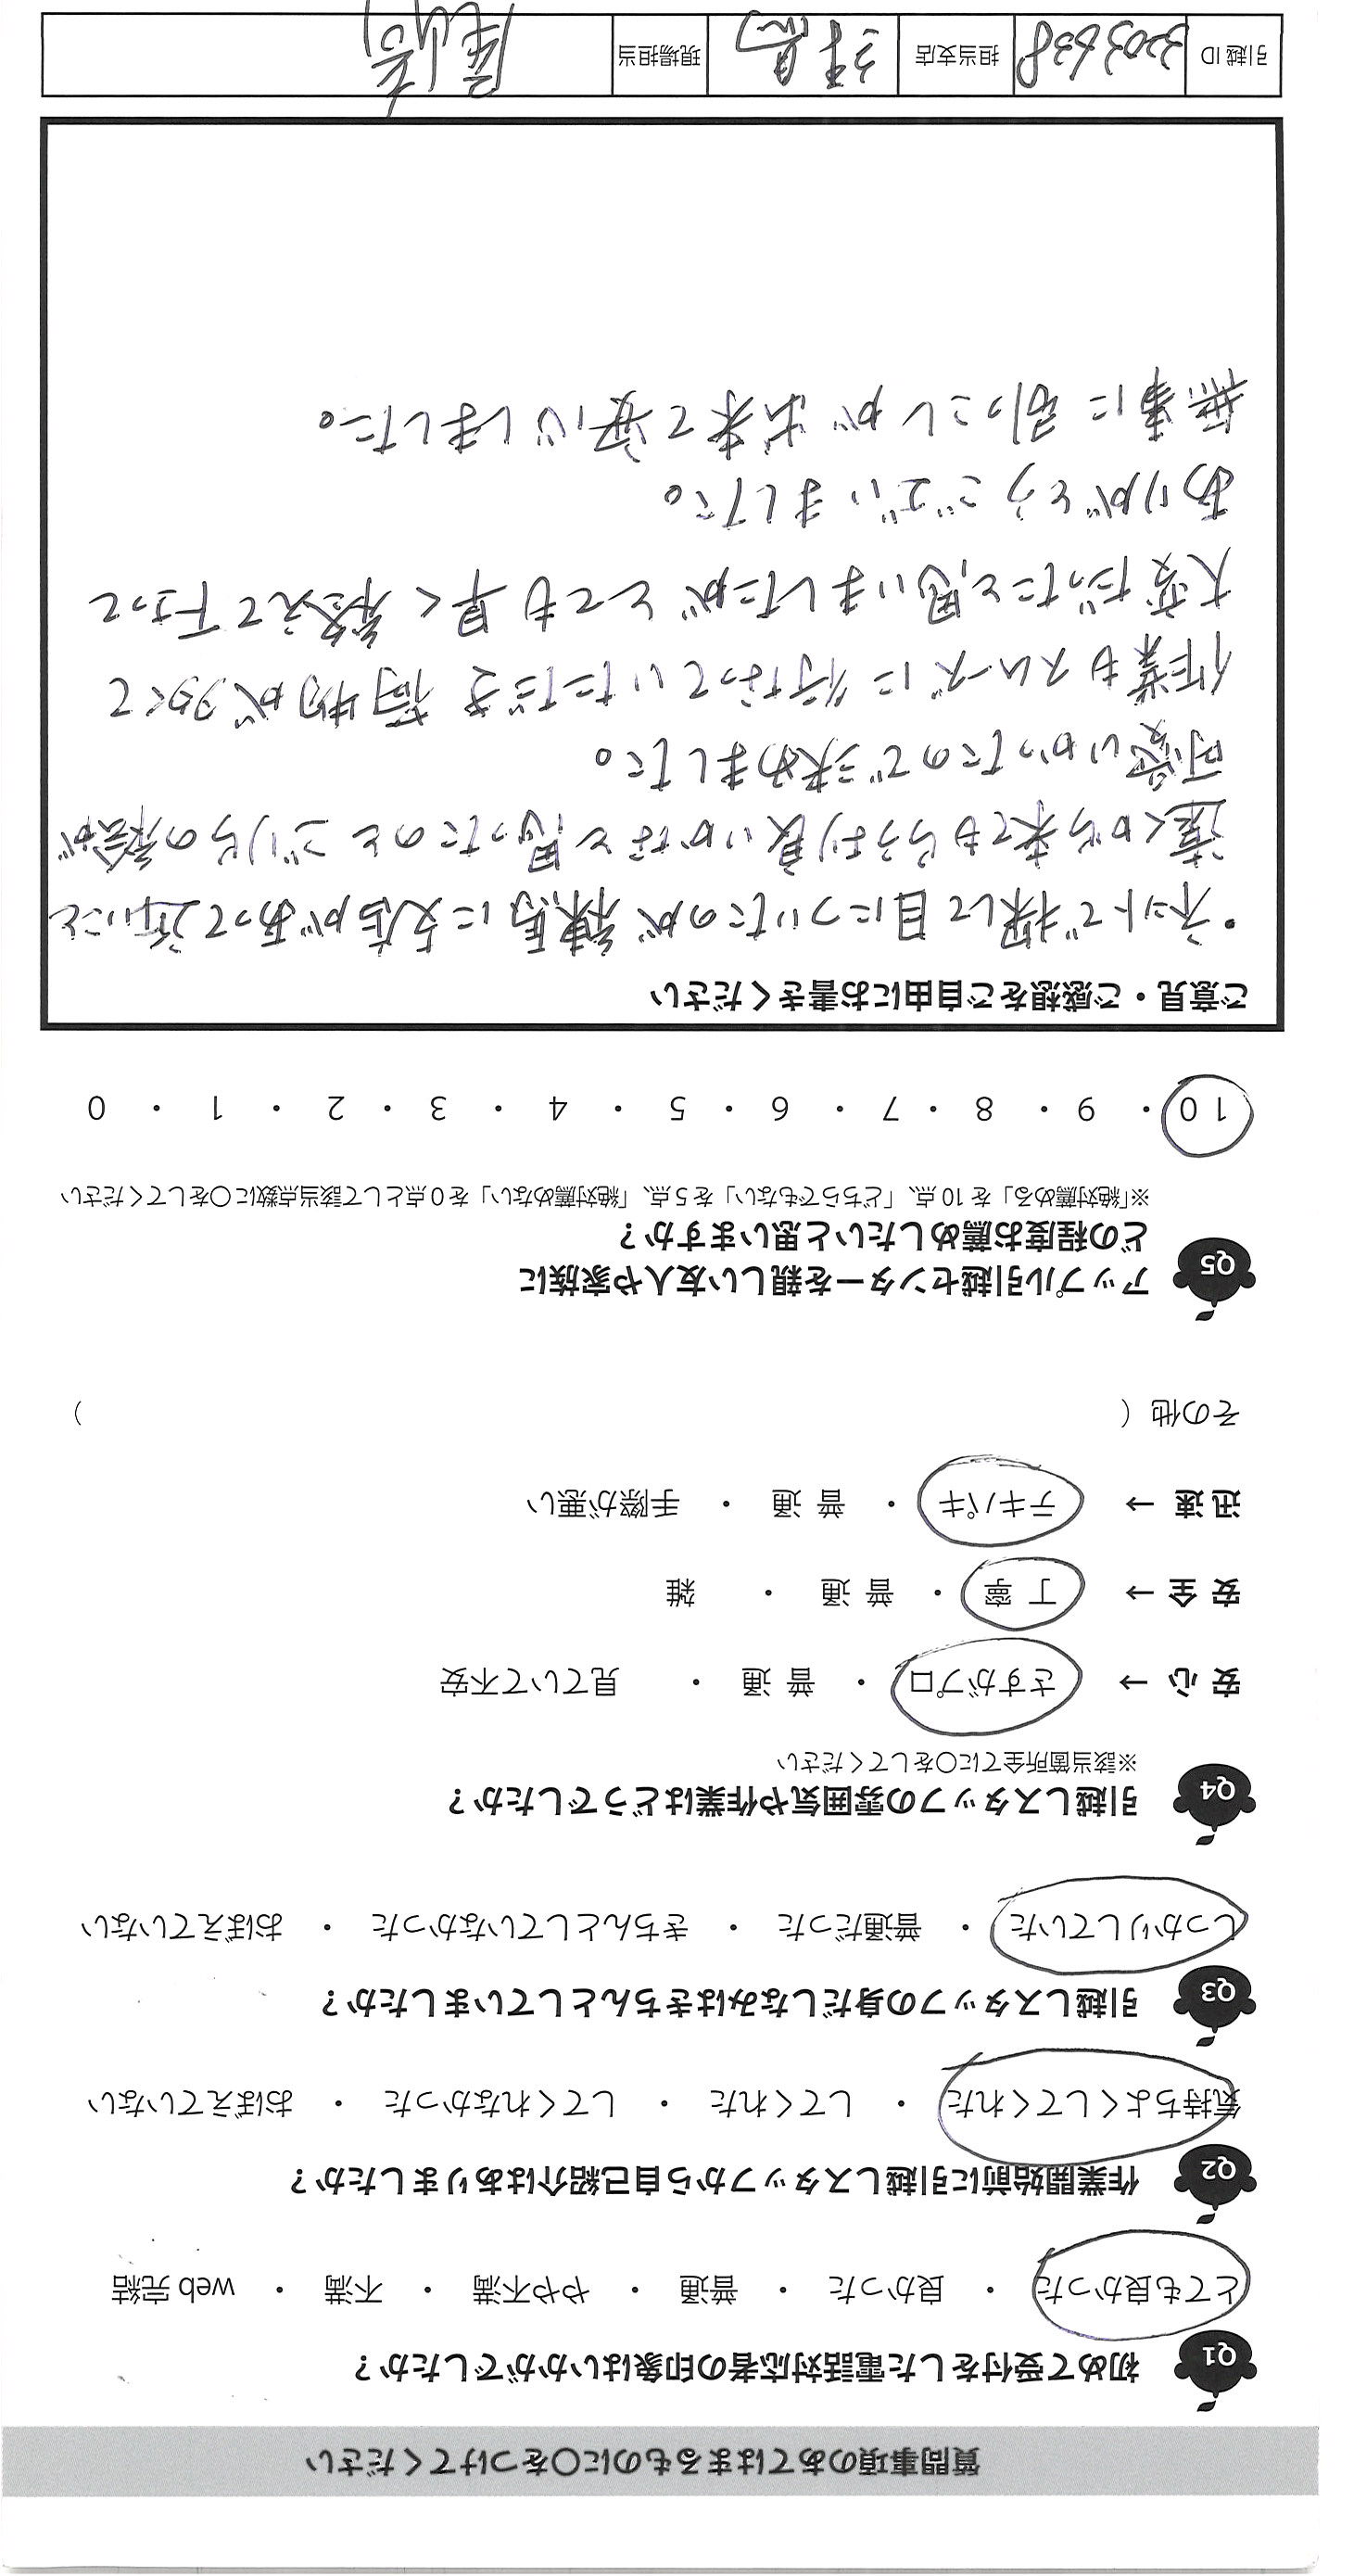 質問事項のあてはまるものに○をつけてください
Q1 初めて受付をした電話対応者の印象はいかがでしたか？
とても良かった ・ 良かった ・ 普通 ・ やや不満 ・ 不満 ・ web 完結
Q2 作業開始前に引越しスタッフから自己紹介はありましたか？
気持ちよくしてくれた ・ してくれた ・ してくれなかった ・ おぼえていない
Q3 引越しスタッフの身だしなみはきちんとしていましたか？
しっかりしていた ・ 普通だった ・ きちんとしていなかった ・ おぼえていない
Q4 引越しスタッフの雰囲気や作業はどうでしたか？
※該当箇所全てに○をしてください
安心 → さすがプロ ・ 普通 ・ 見ていて不安
安全 → 丁寧 ・ 普通 ・ 雑
迅速 → テキパキ ・ 普通 ・ 手際が悪い
その他（ ）
Q5 アップル引越センターを親しい友人や家族に
どの程度お薦めしたいと思いますか？
※「絶対薦める」を 10 点、「どちらでもない」を 5 点、「絶対薦めない」を 0 点として該当点数に○をしてください
10 ・ 9 ・ 8 ・ 7 ・ 6 ・ 5 ・ 4 ・ 3 ・ 2 ・ 1 ・ 0
ご意見・ご感想をご自由にお書きください
・ネットで探して目についたのが練馬に支店があって近いこと
遠くから来てもらうより良いかなと思ったのと ゴリラの絵が
可愛いかったので決めました。
作業もスムーズに行なっていただき 荷物が多くて
大変だったと思いましたがとても早く終えて下さって
ありがとうございました。
無事に引っこしが出来て安心しました。
引越 ID 3203638 担当支店 練馬 現場担当 尾崎